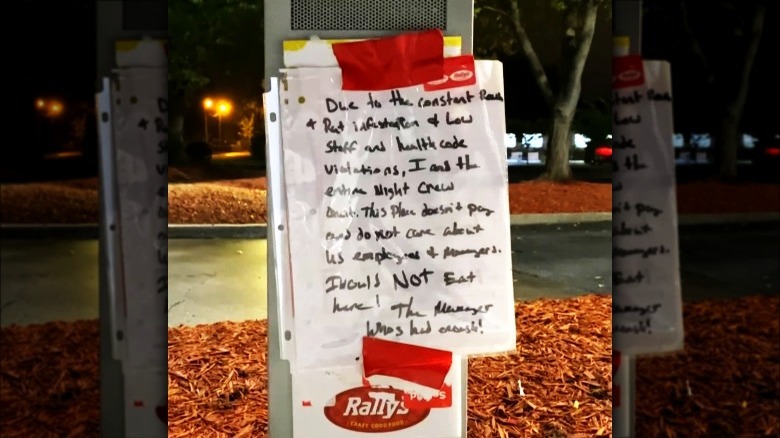 Due to the constant Roach
+ Rat infestation & Low
Staff and health code
violations, I and the
entire Night Crew
Quit. This Place doesn't pay
and do not care about
Us employees & Managers.
I would NOT Eat
here! The Manager
Who's had enough!
Rally's
CRAZY GOOD FOOD